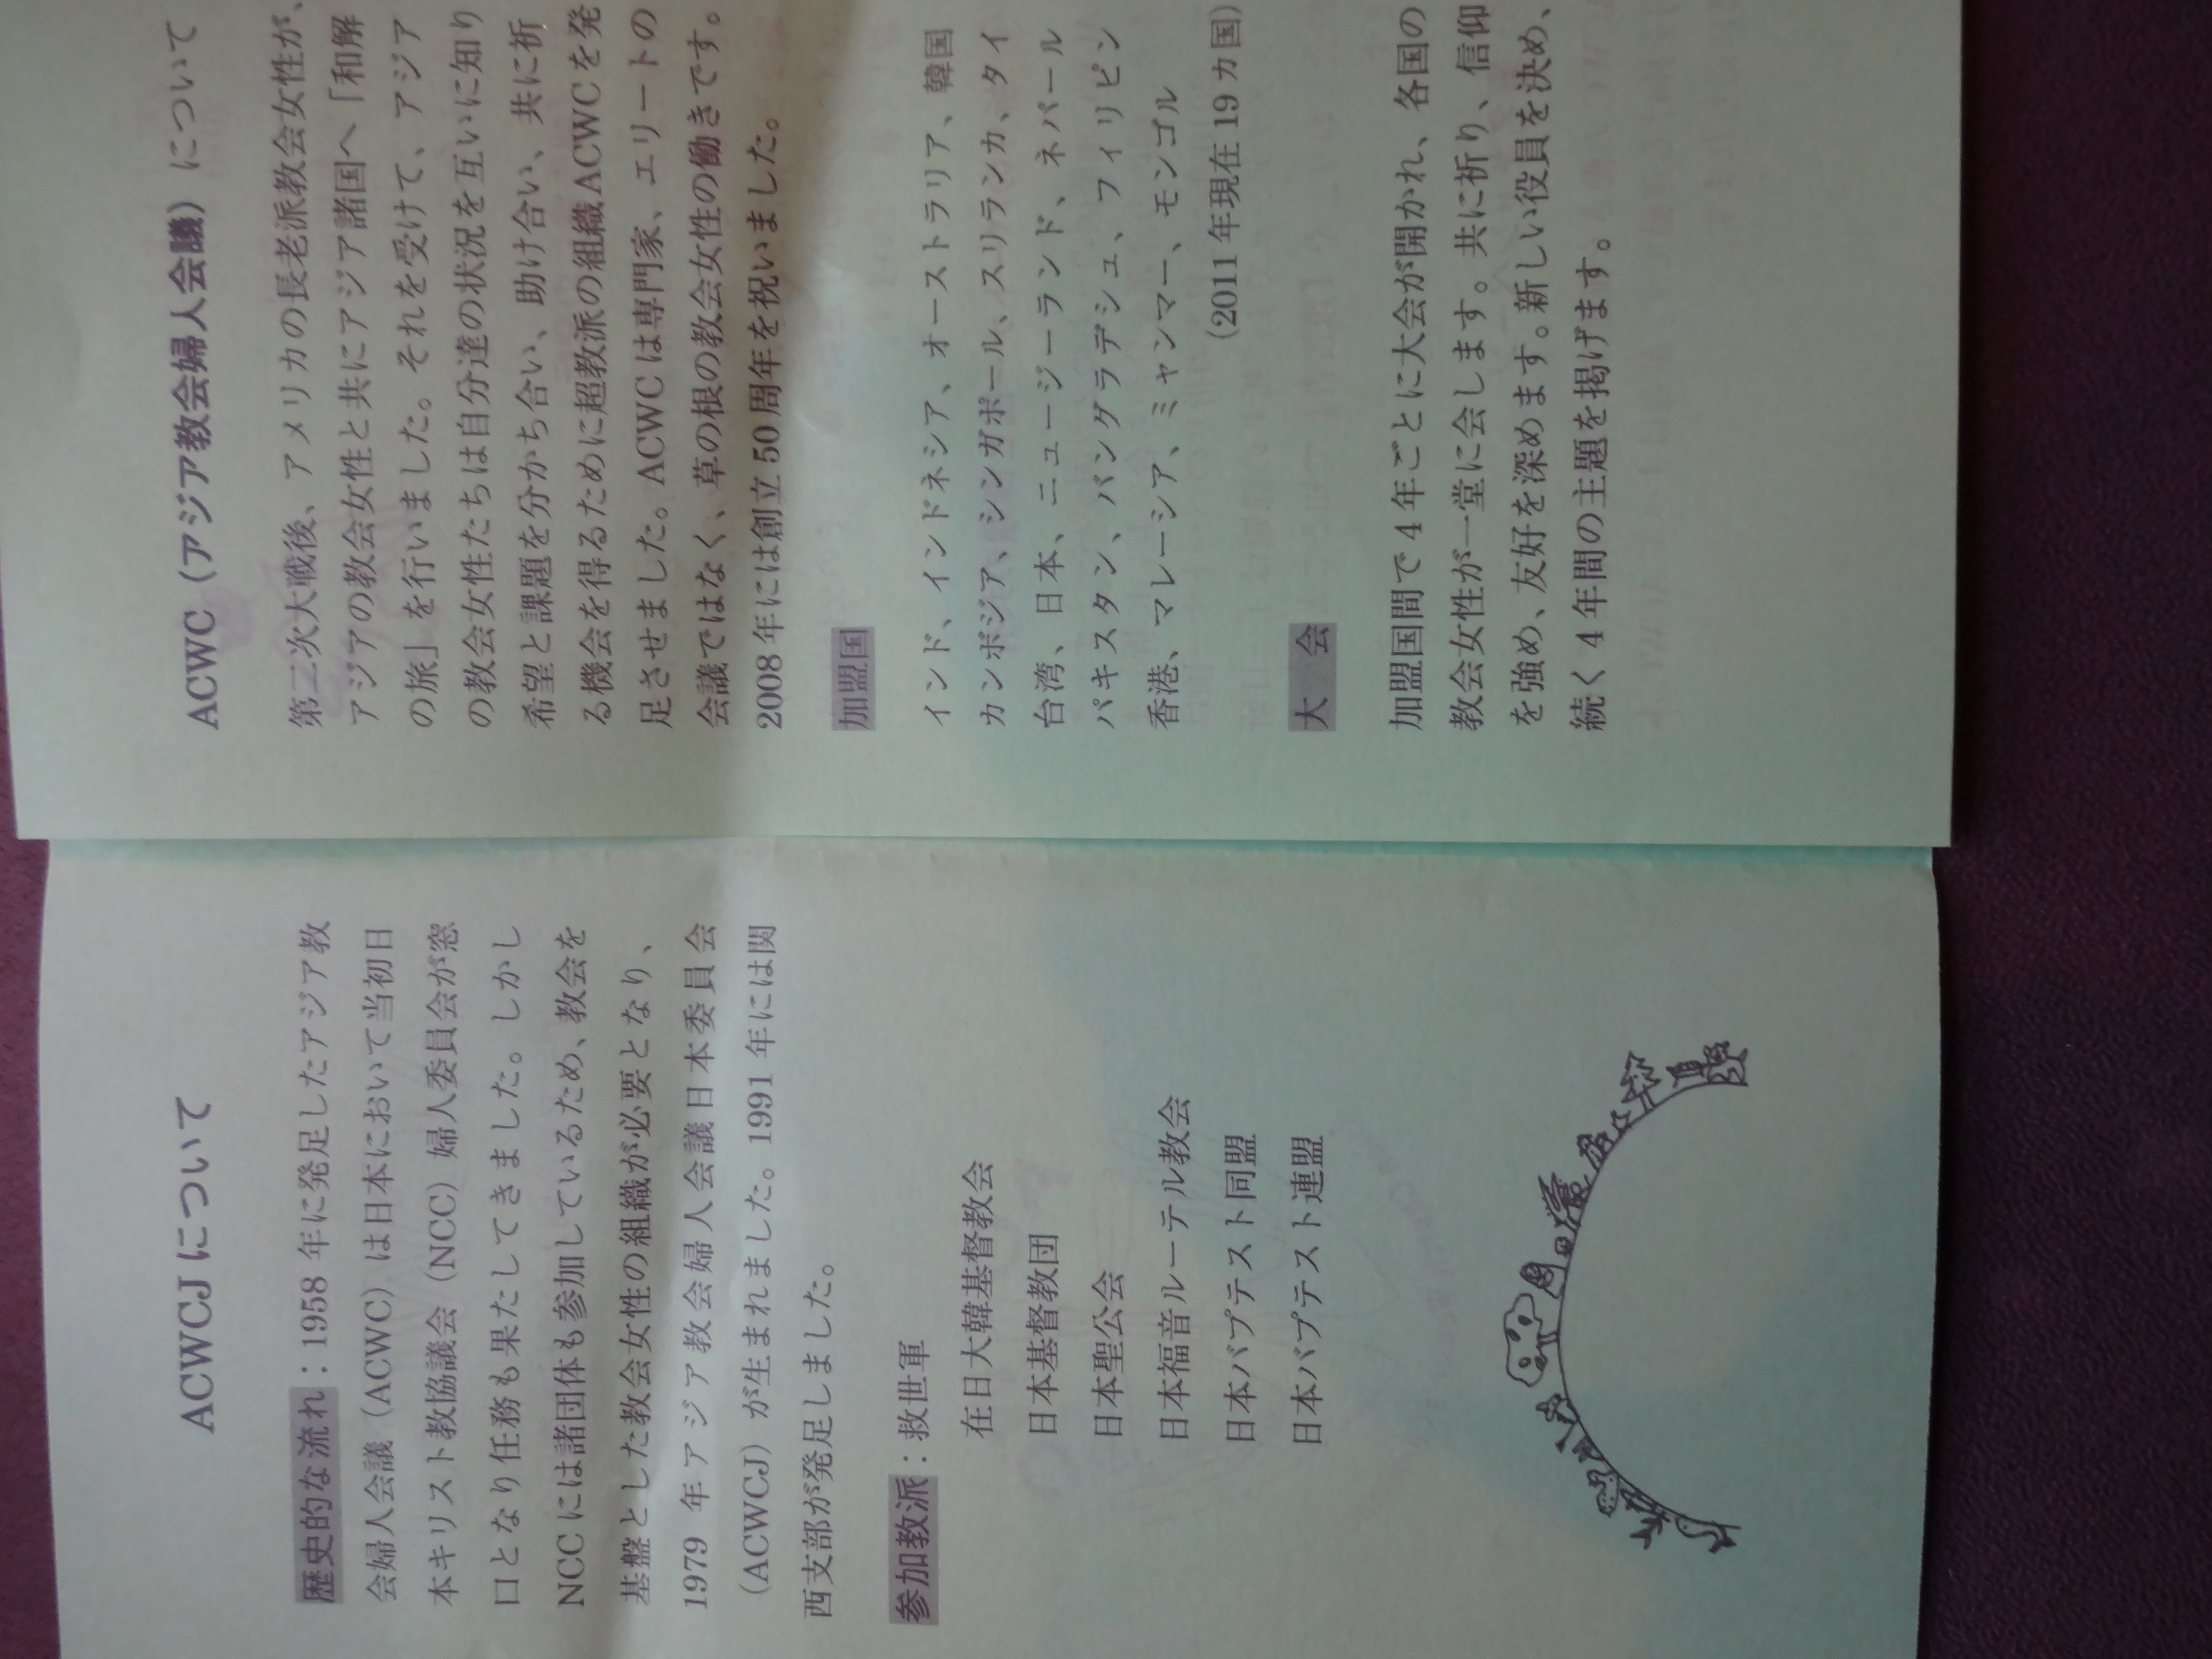 ACWCJ について
歴史的な流れ：1958 年に発足したアジア教
会婦人会議（ACWC）は日本において当初日
本キリスト教協議会（NCC）婦人委員会が窓
口となり任務も果たしてきました。しかし
NCC には諸団体も参加しているため、教会を
基盤とした教会女性の組織が必要となり、
1979 年アジア教会婦人会議日本委員会
（ACWCJ）が生まれました。1991 年には関
西支部が発足しました。
参加教派：救世軍
在日大韓基督教会
日本基督教団
日本聖公会
日本福音ルーテル教会
日本バプテスト同盟
日本バプテスト連盟
ACWC（アジア教会婦人会議）について
第二次大戦後、アメリカの長老派教会女性が、
アジアの教会女性と共にアジア諸国へ「和解
の旅」を行いました。それを受けて、アジア
の教会女性たちは自分達の状況を互いに知り
希望と課題を分かち合い、助け合い、共に祈
る機会を得るために超教派の組織 ACWC を発
足させました。ACWC は専門家、エリートの
会議ではなく、草の根の教会女性の働きです。
2008 年には創立 50 周年を祝いました。
加盟国
インド、インドネシア、オーストラリア、韓国
カンボジア、シンガポール、スリランカ、タイ
台湾、日本、ニュージーランド、ネパール
パキスタン、バングラデシュ、フィリピン
香港、マレーシア、ミャンマー、モンゴル
（2011 年現在 19 カ国）
大　会
加盟国間で 4 年ごとに大会が開かれ、各国の
教会女性が一堂に会します。共に祈り、信仰
を強め、友好を深めます。新しい役員を決め、
続く 4 年間の主題を掲げます。